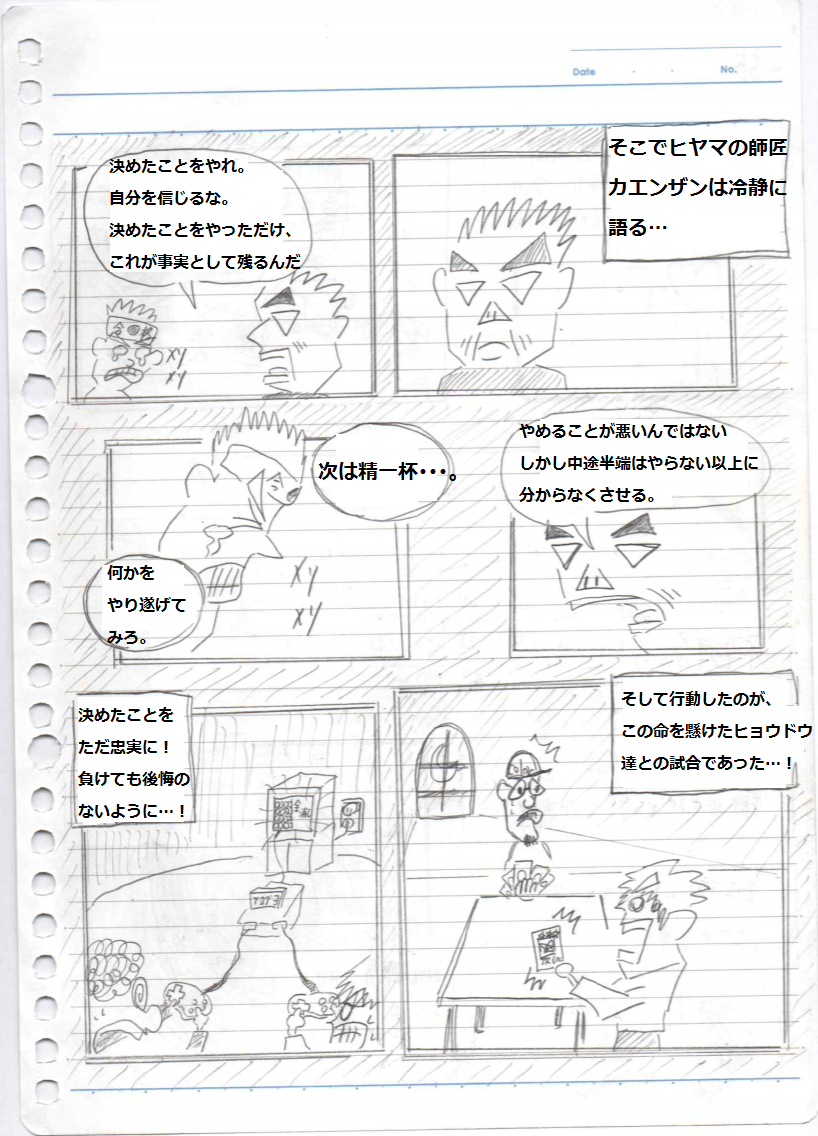 Date
No.
そこでヒヤマの師匠
カエンザンは冷静に
語る…
決めたことをやれ。
自分を信じるな。
決めたことをやっただけ、
これが事実として残るんだ
やめることが悪いんではない
しかし中途半端はやらない以上に
分からなくさせる。
次は精一杯･･･。
何かを
やり遂げて
みろ。
そして行動したのが、
この命を懸けたヒョウドウ
達との試合であった…！
決めたことを
ただ忠実に！
負けても後悔の
ないように…！